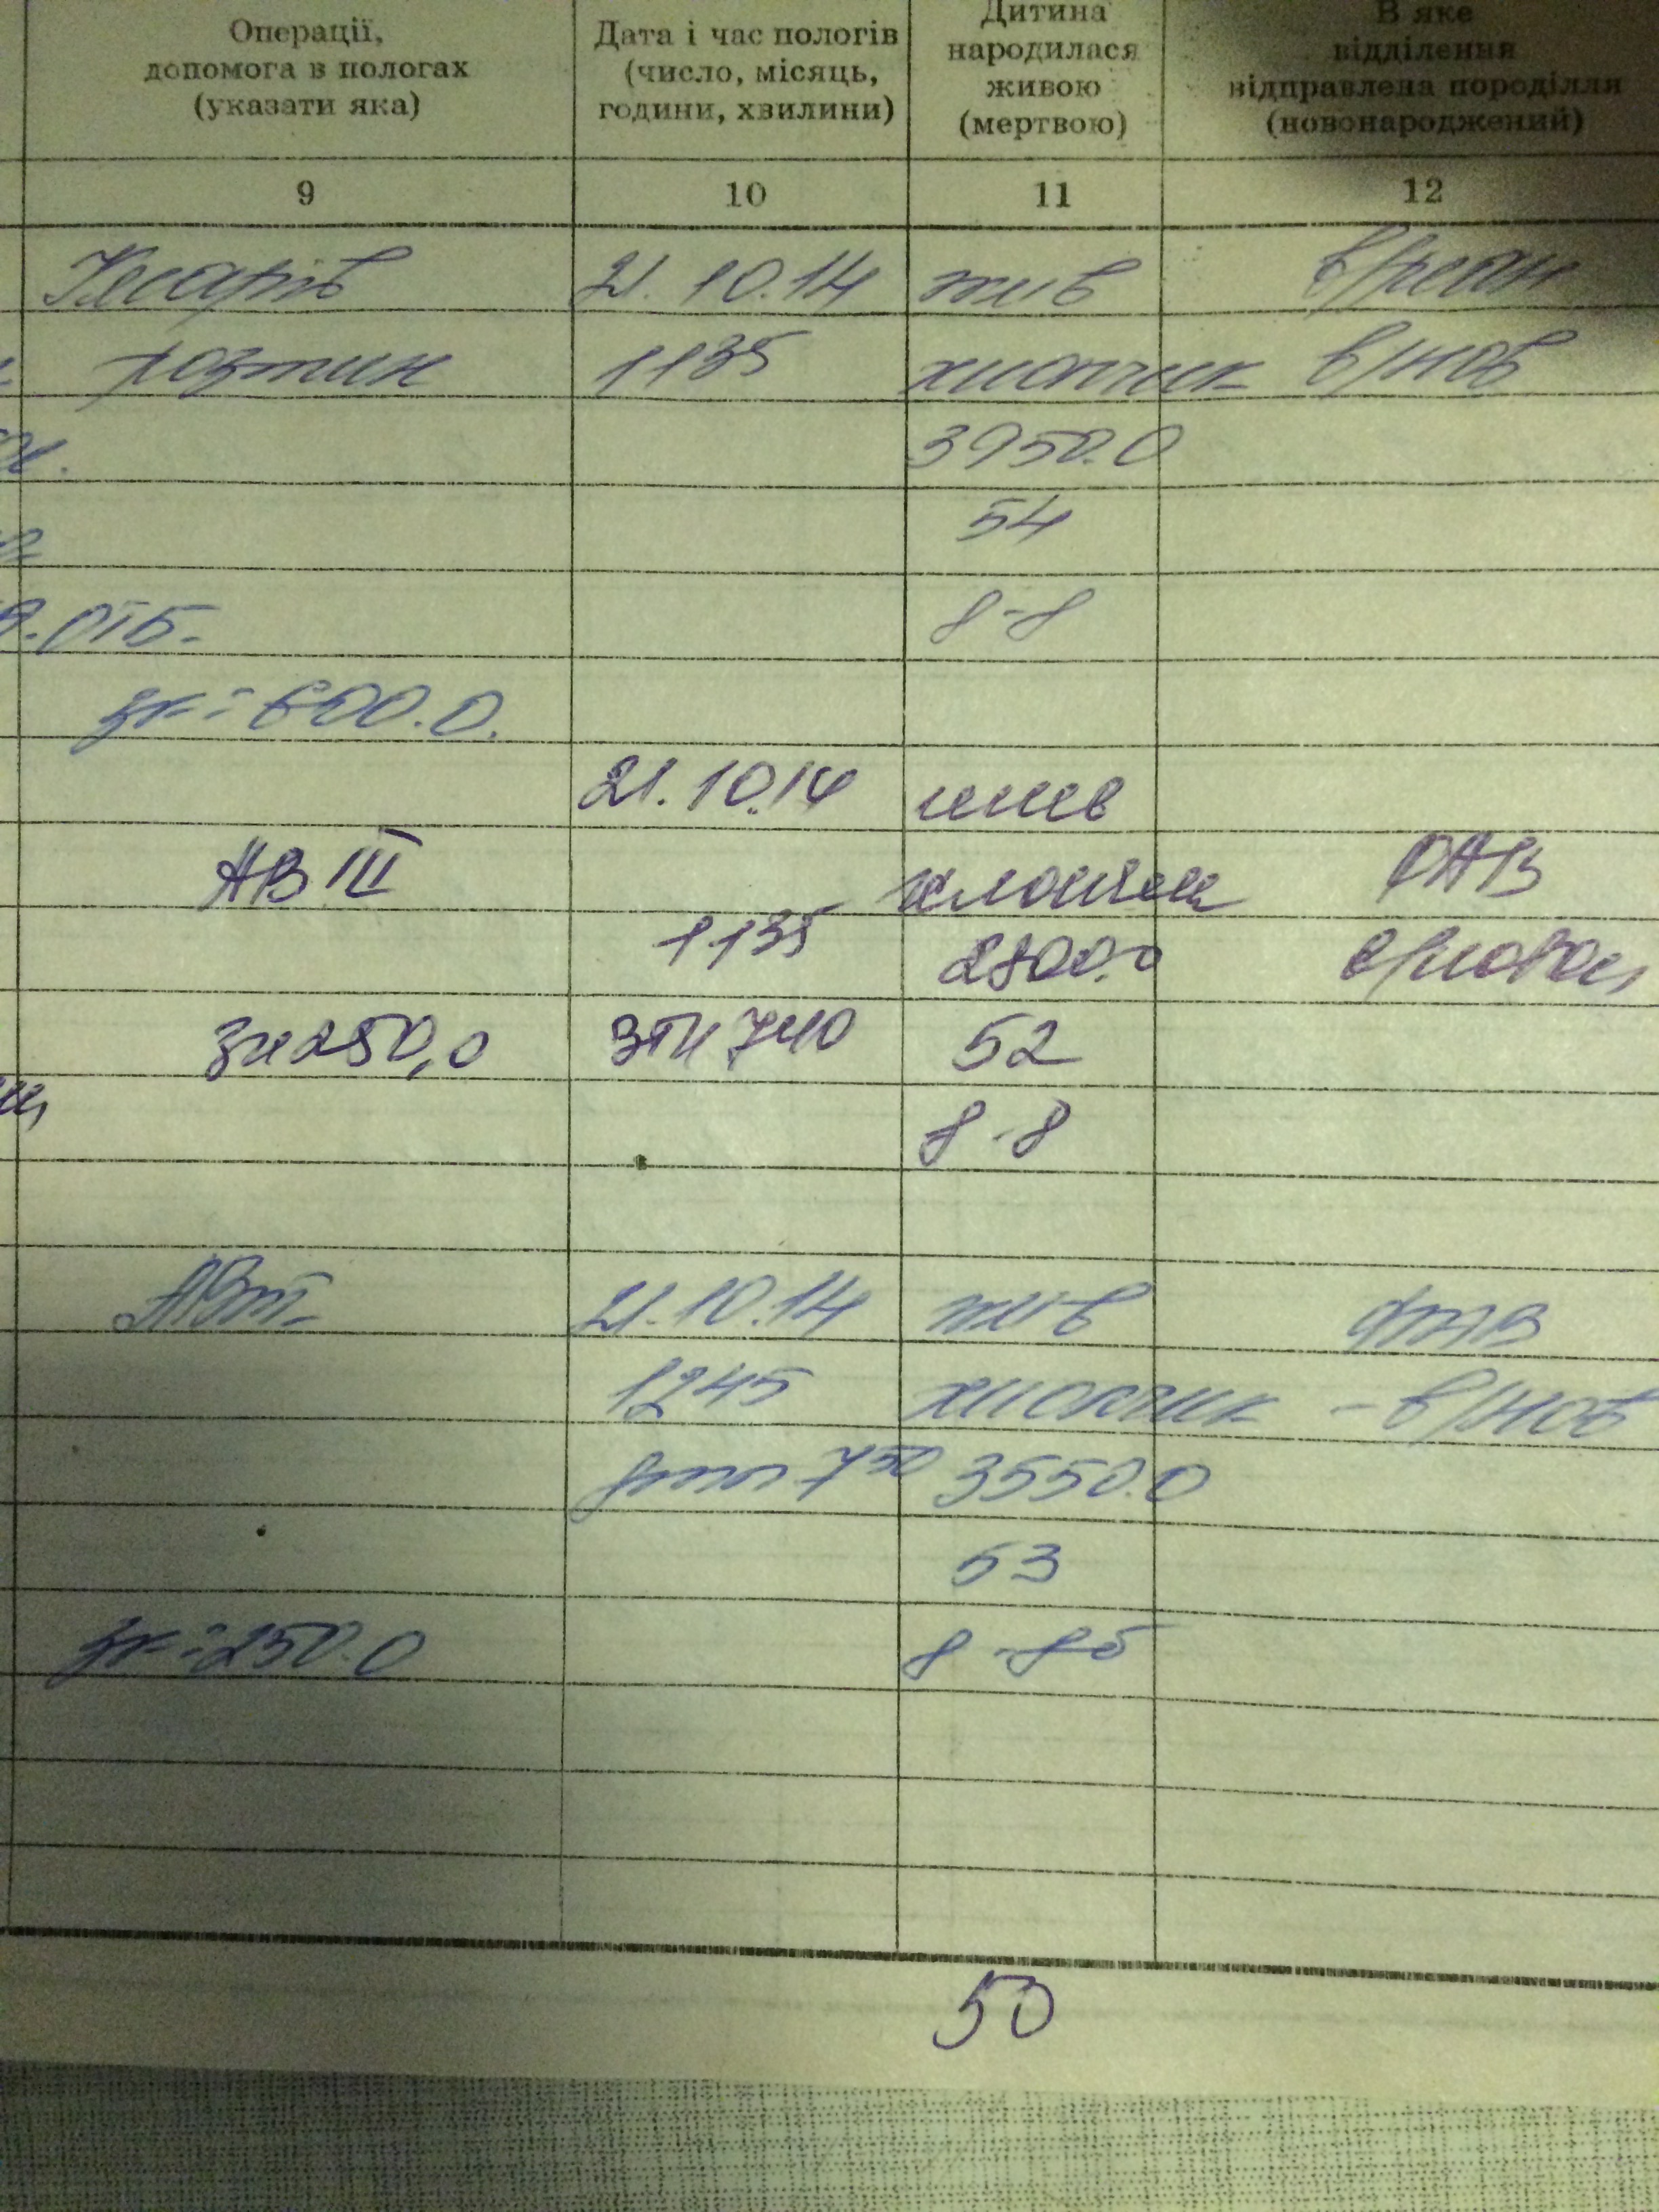 Операції,
допомога в пологах
(указати яка)
Дата і час пологів
(число, місяць,
години, хвилини)
Дитина
народилася
живою
(мертвою)
В яке
відділення
відправлена породілля
(новонароджений)
9 10 11 12
Кесарів 21.10.14 жив в/реан
розтин 11 35 хлопчик в/нов
3950.0
54
8-8
зк = 600.0.
21.10.14 жив
АВ III хлопчик ФАВ
11 35 2800.0
зк 250,0 ЗПИ 740 52
8-8
21.10.14 жив
12 45 хлопчик - в/нов
7 50 3550.0
53
зк = 250.0 8-8б
50